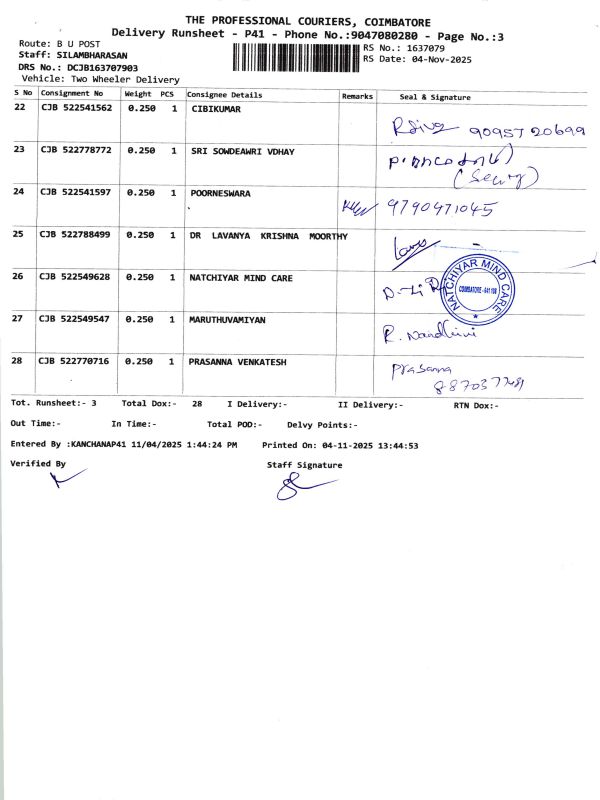 THE PROFESSIONAL COURIERS, COIMBATORE
Delivery Runsheet - P41 - Phone No.:9047080280 - Page No.:3
Route: B U POST
Staff: SILAMBHARASAN
RS No.: 1637079
DRS No.: DCJB163707903
RS Date: 04-Nov-2025
Vehicle: Two Wheeler Delivery
S No Consignment No Weight PCS Consignee Details Remarks Seal & Signature
22 CJB 522541562 0.250 1 CIBIKUMAR
9095720699
23 CJB 522778772 0.250 1 SRI SOWDEAWRI VDHAY
24 CJB 522541597 0.250 1 POORNESWARA
9790471045
25 CJB 522788499 0.250 1 DR LAVANYA KRISHNA MOORTHY
26 CJB 522549628 0.250 1 NATCHIYAR MIND CARE
NATCHIYAR MIND CARE
27 CJB 522549547 0.250 1 MARUTHUVAMIYAN
R. Nandhini
28 CJB 522770716 0.250 1 PRASANNA VENKATESH
Prasanna
Tot. Runsheet:- 3 Total Dox:- 28 I Delivery:- II Delivery:- RTN Dox:-
Out Time:- In Time:- Total POD:- Delvy Points:-
Entered By :KANCHANAP41 11/04/2025 1:44:24 PM Printed On: 04-11-2025 13:44:53
Verified By Staff Signature